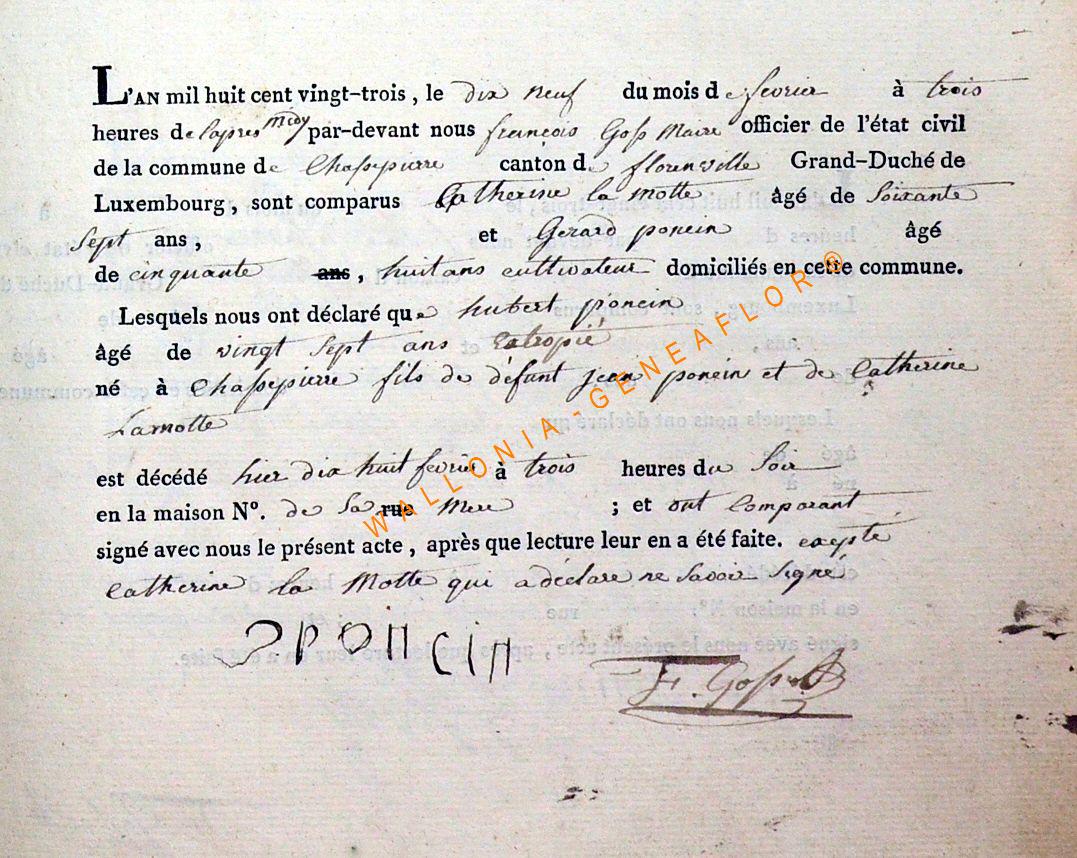 L'AN mil huit cent vingt-trois, le dix neuf du mois de fevrier à trois
heures de l'apres midy par-devant nous françois Goss Maire officier de l'état civil
de la commune de Chassepierre canton de florenville Grand-Duché de
Luxembourg, sont comparus Catherine la motte âgé de Soixante
Sept ans, et Gerard poncin âgé
de cinquante ans, huit ans cultivateur domiciliés en cette commune.
Lesquels nous ont déclaré que hubert poncin
âgé de vingt Sept ans Estropié
né à Chassepierre fils de défunt jean poncin et de Catherine
Lamotte
est décédé hier dix huit fevrier à trois heures du Soir
en la maison N°. de Sa rue Mere ; et ont Comparant
signé avec nous le présent acte, après que lecture leur en a été faite. excepte
Catherine la Motte qui a déclare ne Savoir Signé
G poncin
F. Goss
WALLONIA-GENEAFLOR®